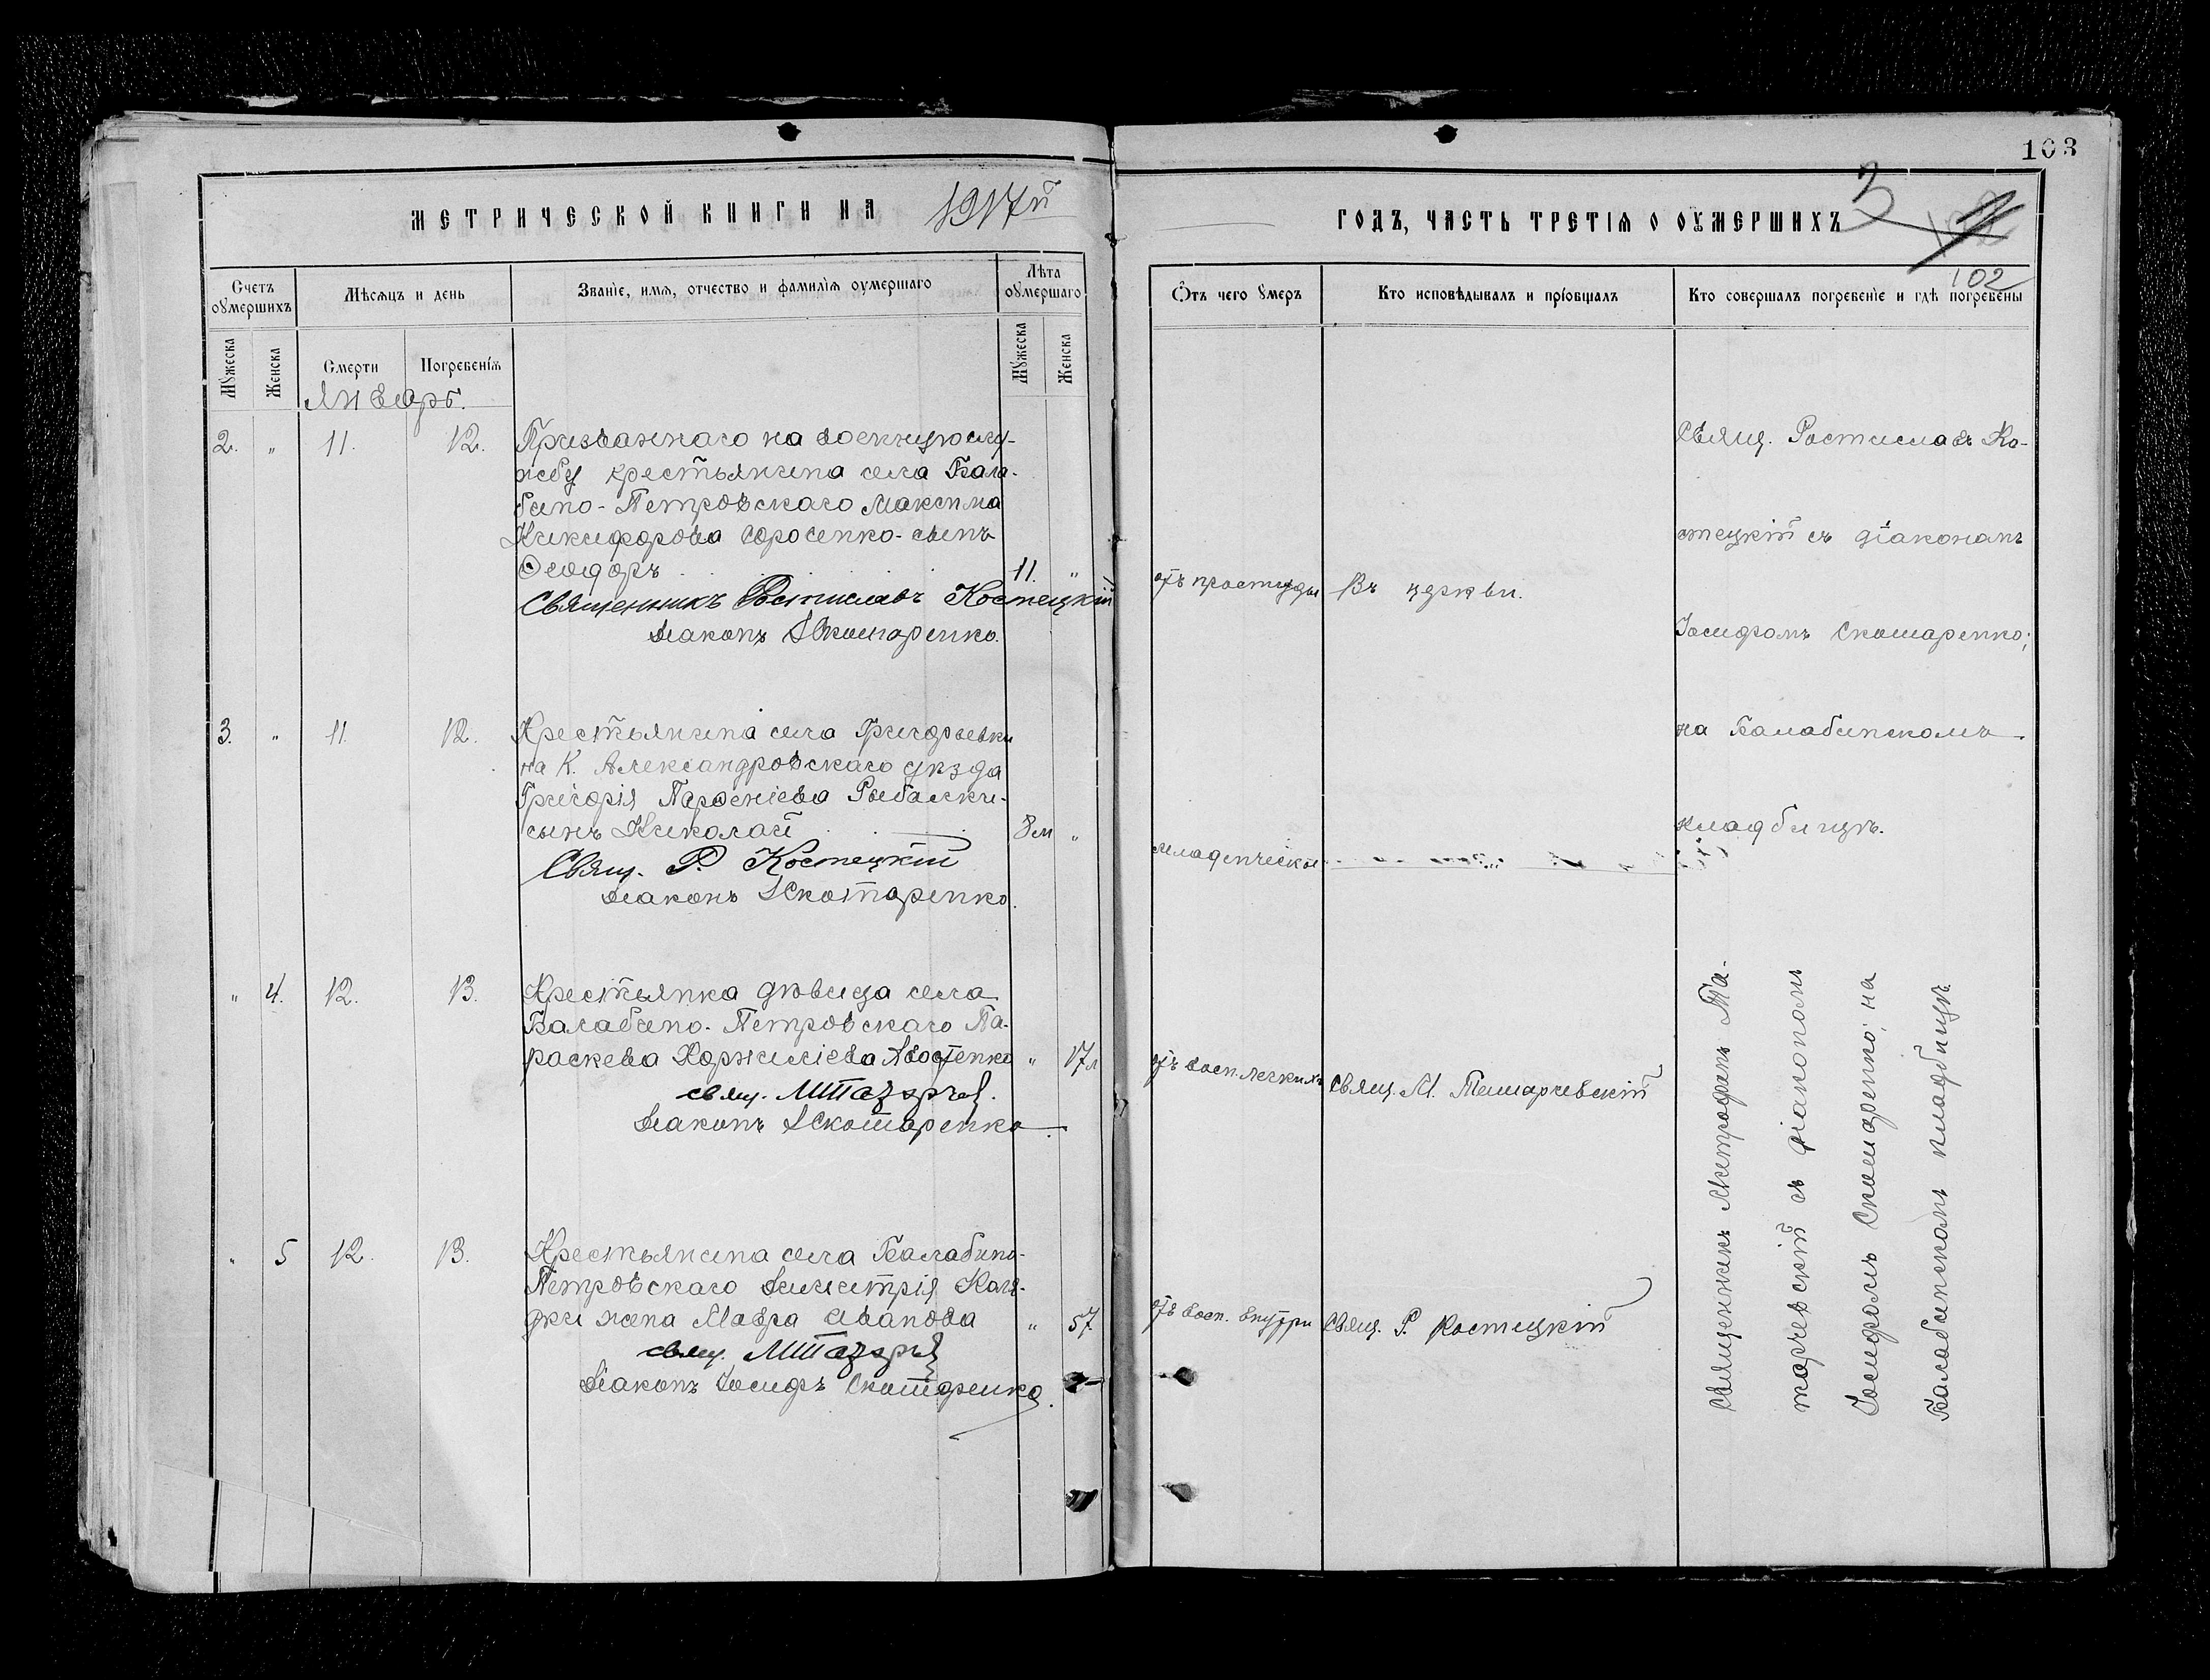 МЕТРИЧЕСКОЙ КНИГИ НА 1917й
Счетъ оумершихъ
Мѣсяцъ и день
Званіе, имя, отчество и фамилія оумершаго
Лѣта оумершаго
Мужеска
Женска
Смерти
Погребенія
Мужеска
Женска
Январь.
2. " 11. 12. Призваннаго на военную слу-
жбу крестьянина села Бала-
бино-Петровскаго Максима
Никифорова сынъ
Ѳеодоръ 11. "
Священникъ Ростиславъ Костецкій
Діаконъ І Скотаренко.
3. " 11. 12. Крестьянина села Григорьевки
на К. Александровскаго уѣзда
Григорія Парѳеніева Рыбалки-
сынъ Николай 8 м "
Свящ. Р. Костецкій
Діаконъ І Скотаренко.
" 4. 12. 13. Крестьянка дѣвица села
Балабино-Петровскаго Па-
раскева Корниліева " 17 л
свящ.
Діаконъ І Скотаренко.
" 5 12. 13. Крестьянина села Балабино-
Петровскаго Димитрія Каля-
дки жена Мавра Иванова " 57.
свящ.
Діаконъ Іосифъ Скотаренко.
103
ГОДЪ, ЧАСТЬ ТРЕТІЯ О ОУМЕРШИХЪ
3
102
Отъ чего умеръ
Кто исповѣдывалъ и пріобщалъ
Кто совершалъ погребеніе и гдѣ погребены
отъ простуды
Въ церкви.
Свящ. Ростиславъ Ко-
стецкій съ діакономъ
Іосифомъ Скотаренко;
на Балабинскомъ
кладбищѣ.
младенческой
отъ восп. легкихъ
Свящ. М.
отъ восп. внутри
Свящ. Р. Костецкій
Священникъ Митрофанъ
съ діакономъ
Іосифомъ Скотаренко; на
Балабинскомъ кладбищѣ.